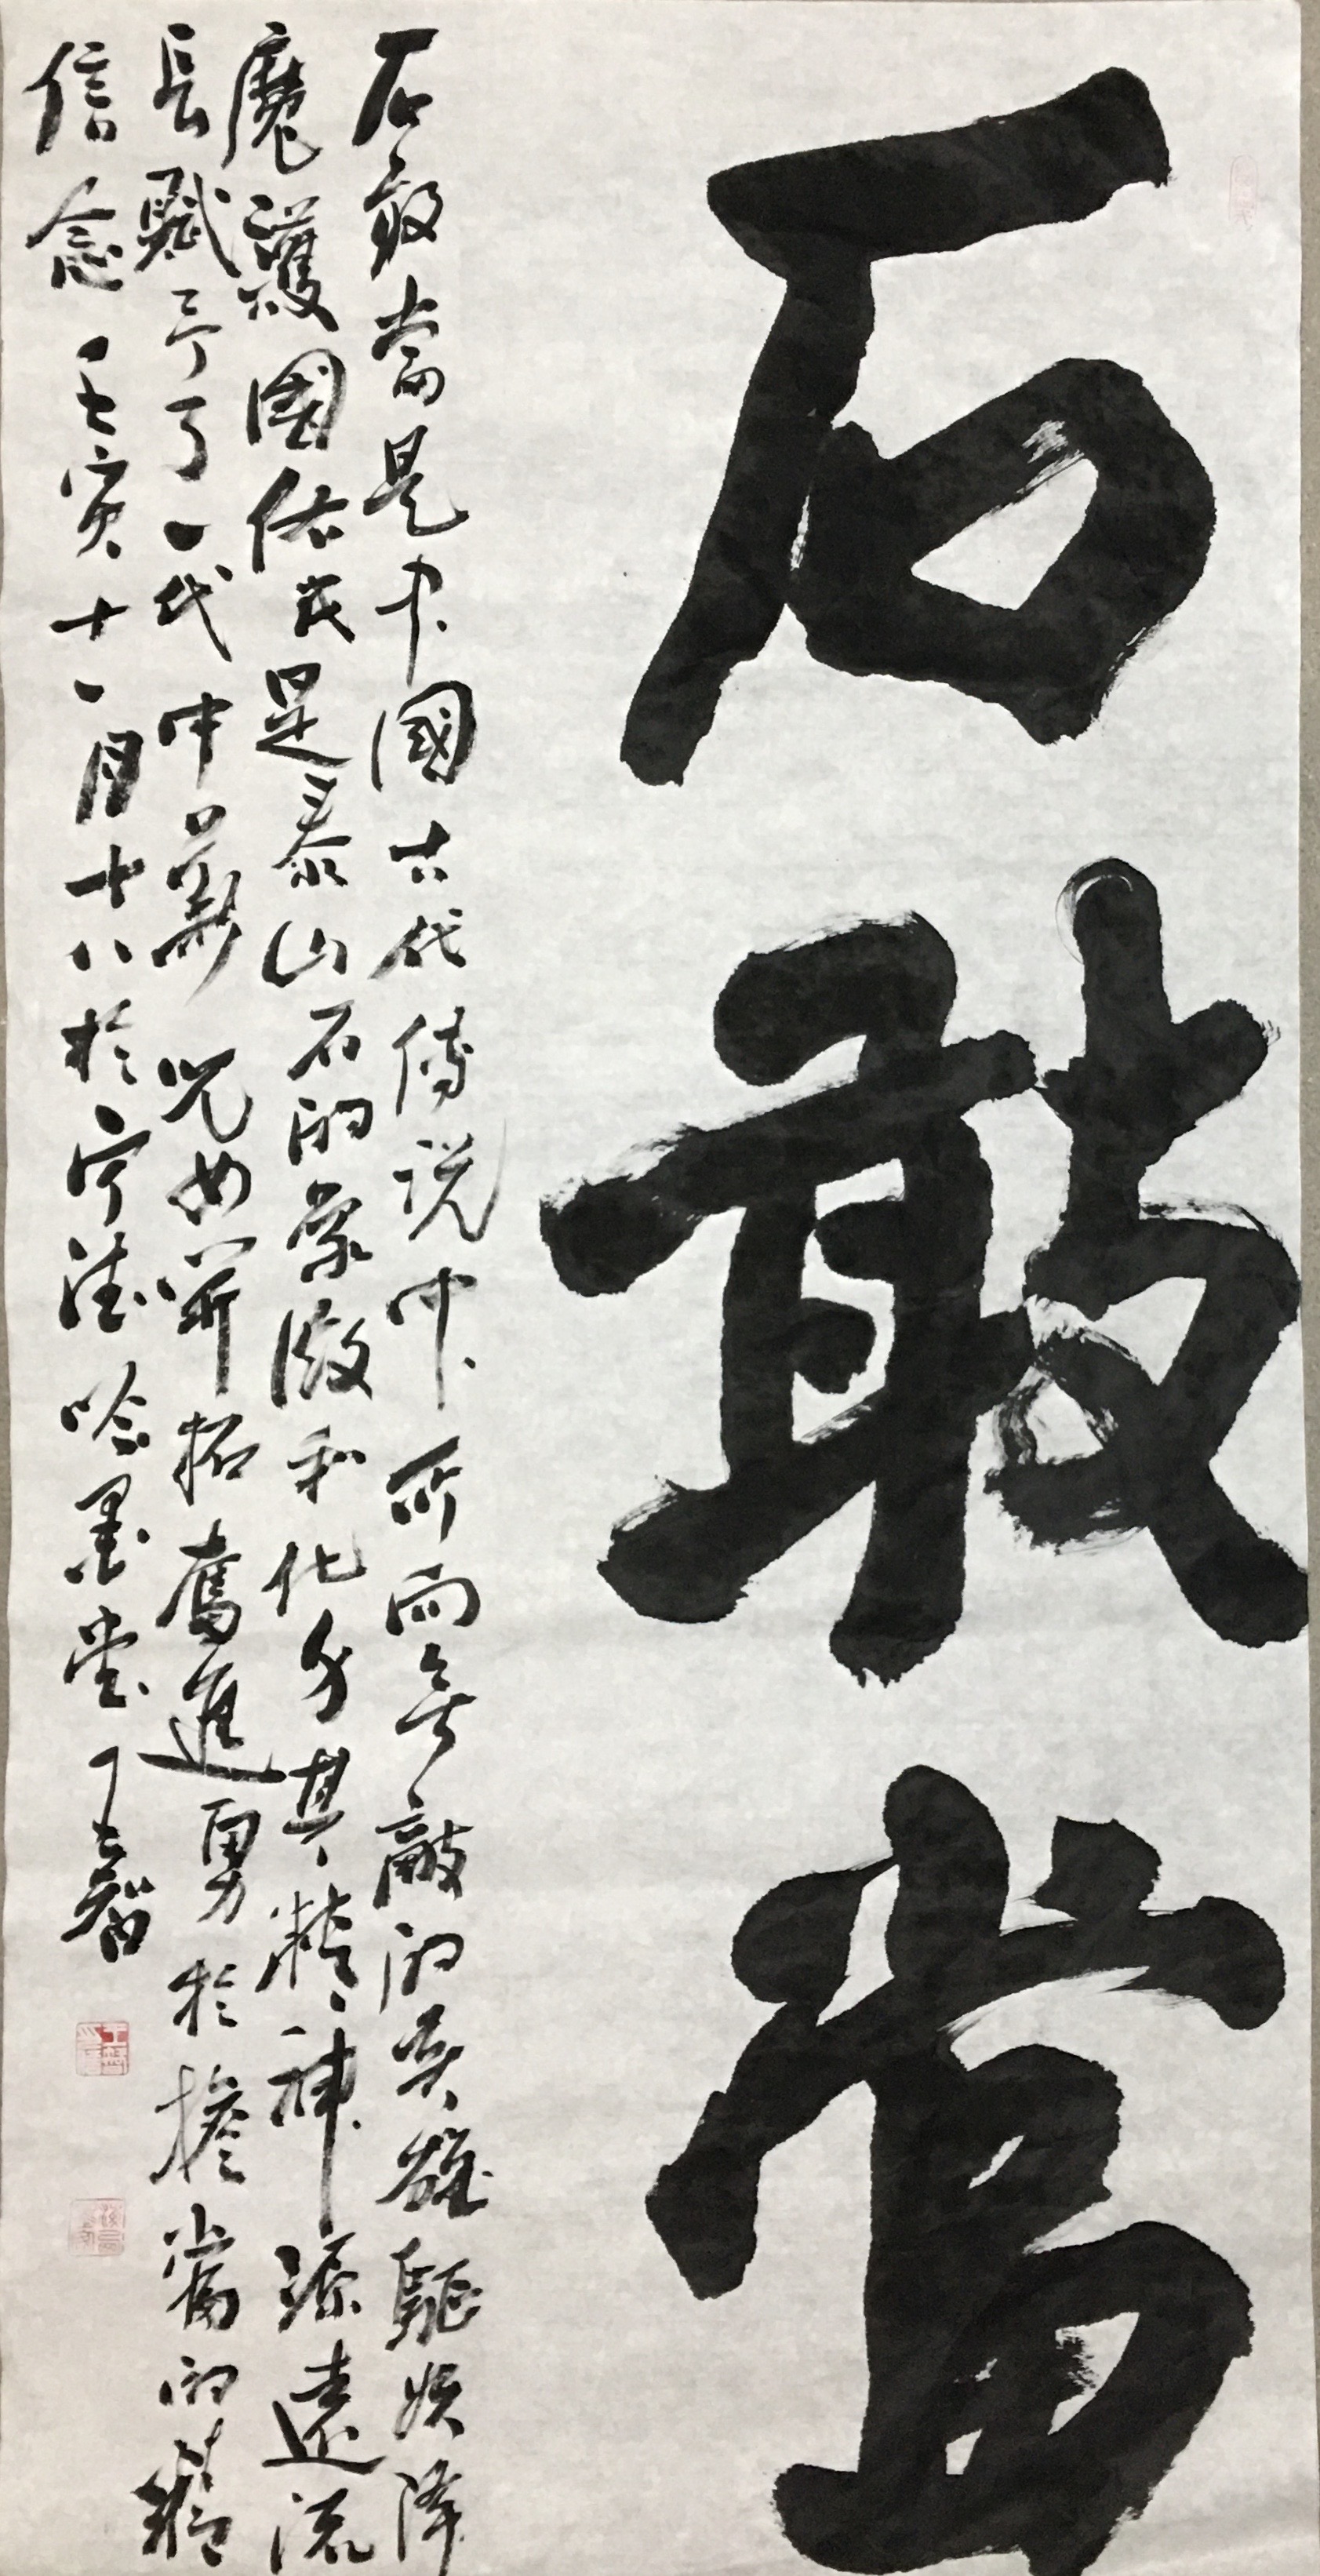 石敢當
石敢當是中國古代傳説中所向無敵的英雄驅妖降
魔護國佑民是泰山石的象徵和化身其精神源遠流
長賦予了一代中華兒女開拓奮進勇於擔當的精
信念壬寅十一月十八於宁德吟墨堂丁智